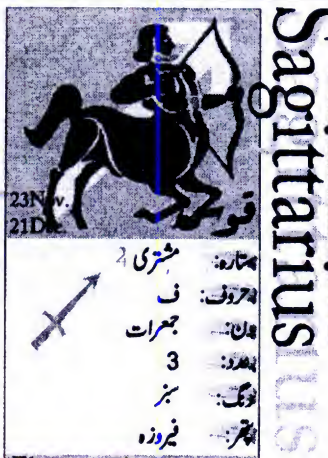 Sagittarius
23Nov.
21Dec
قوس
ستارہ: مشتری
حروف: ف
دن: جمعرات
عدد: 3
رنگ: سبز
پتھر: فیروزہ